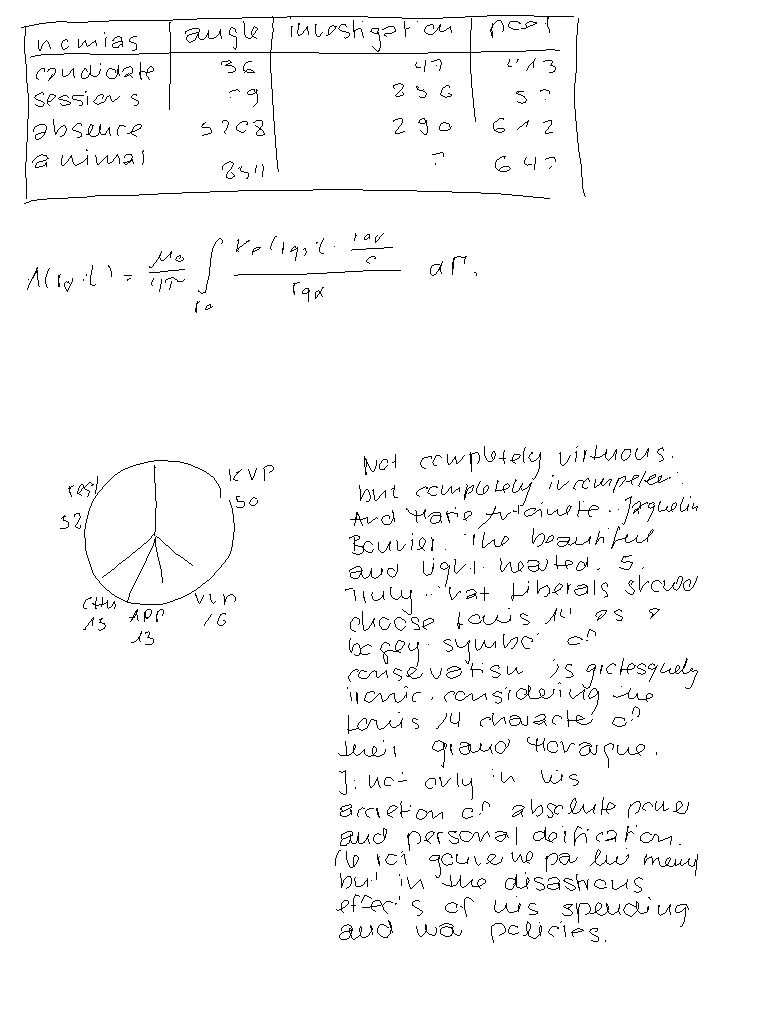 nomias angle investigation pool
candidate 36 47 413
sessions 79 256 57
absence 5708 290 612
animal 8511 ? 647
KVP
50
rest
52
CHU
13
ARP
13
VVD
16
Not completely virtuous.
but completely incompetent.
And Marie Antoinette. Jaquelin
Bouvier. The beautiful
and light hearted. 5.
Truly. that Liberals should
choose Louis 14 as a
bogey symbol of
conservatism is grotesquely
ironic. considering the
Louis 14 character of
their grand Monarque.
J. not only in his
accretion of absolute power
and personal deification.
(le roi gouverne par lui meme)
but in the disastrous
effects of his spending
and war policies.